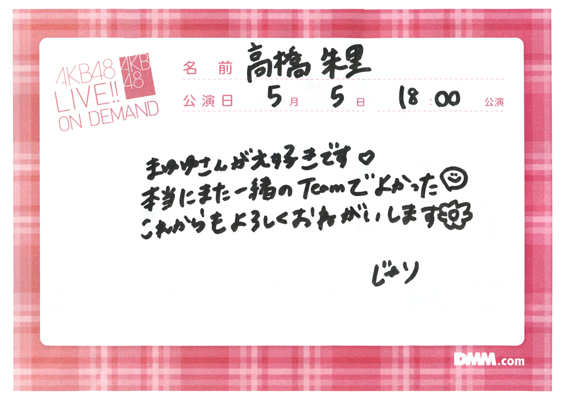 AKB48
LIVE!!
ON DEMAND
AKB
48
名前 高橋 朱里
公演日 5月 5日 18:00 公演
まゆゆさんが大好きです♡
本当にまた一緒のTeamでよかった
これからもよろしくおねがいします
じゅり
DMM.com